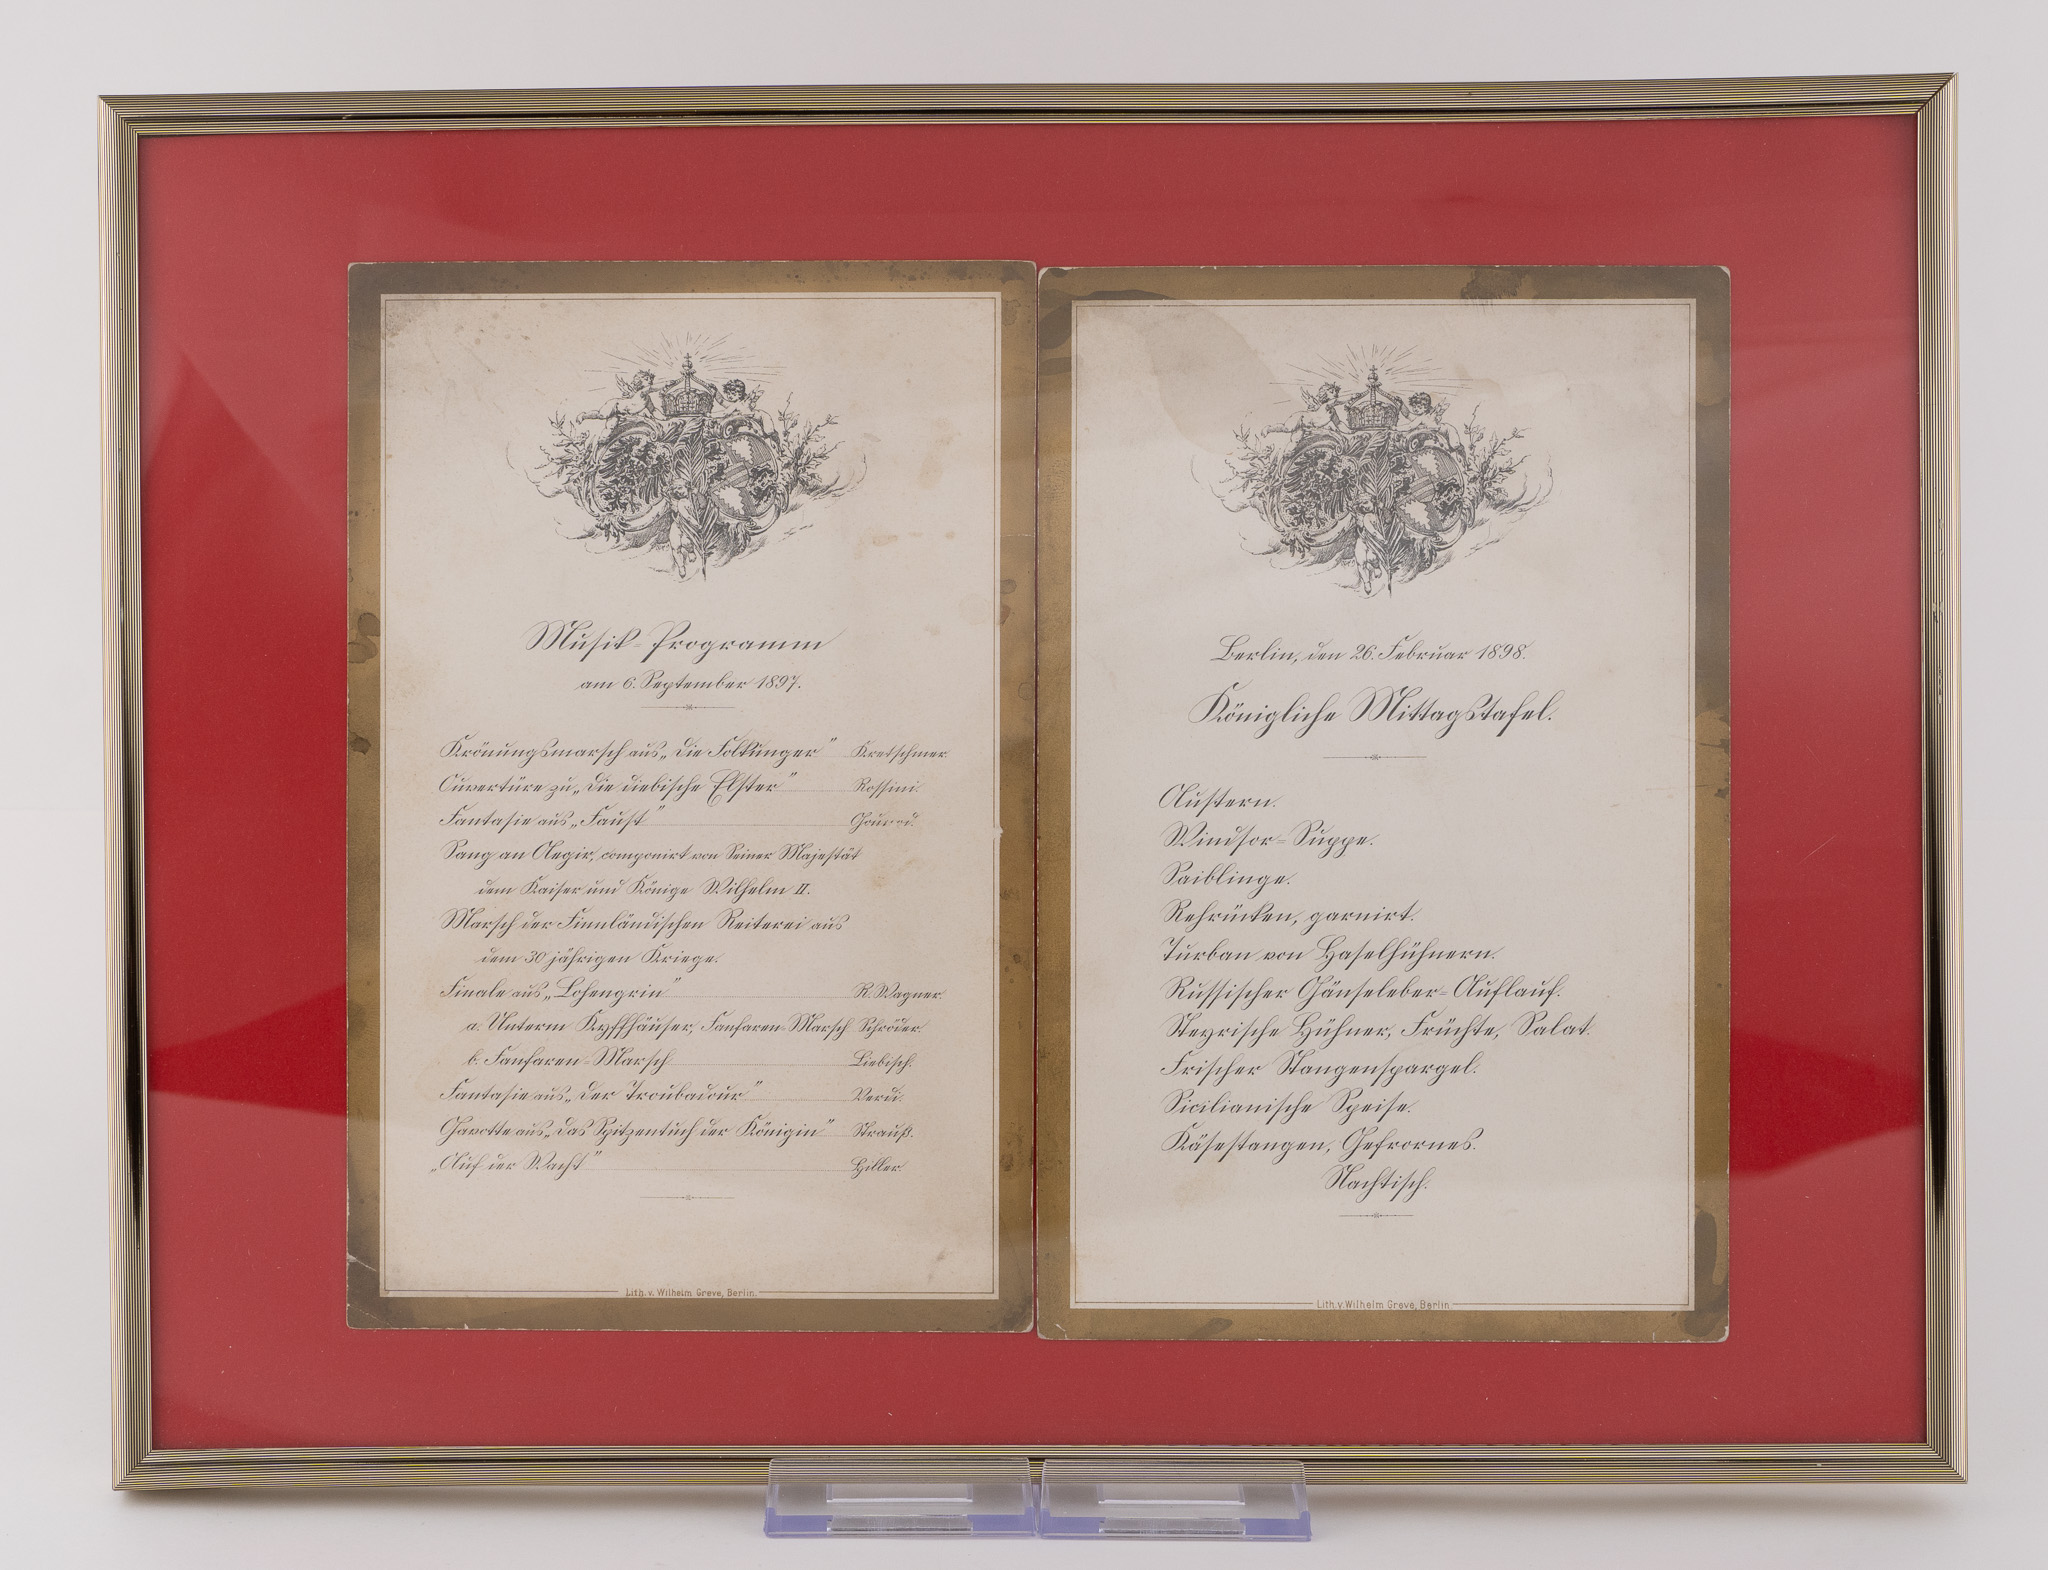 Musik-Programm
am 6. September 1897.
Krönungsmarsch aus „Die Folkunger" Kretschmer.
Ouvertüre zu „Die diebische Elster" Rossini.
Fantasie aus „Faust" Gounod.
Sang an Aegir, componirt von Seiner Majestät
dem Kaiser und Könige Wilhelm II.
Marsch der Finnländischen Reiterei aus
dem 30 jährigen Kriege.
Finale aus „Lohengrin" R. Wagner.
a. Unterm Kyffhäuser, Fanfaren-Marsch Schröder.
b. Fanfaren-Marsch Liebisch.
Fantasie aus „Der Troubadour" Verdi.
Gavotte aus „Das Spitzentuch der Königin" Strauß.
„Auf der Wacht" Hiller.
Lith. v. Wilhelm Greve, Berlin.
Berlin, den 26. Februar 1898.
Königliche Mittagstafel.
Austern.
Windsor-Suppe.
Saiblinge.
Rehrücken, garnirt.
Turban von Haselhühnern.
Russischer Gänseleber-Auflauf.
Steyrische Hühner, Früchte, Salat.
Frischer Stangenspargel.
Sicilianische Speise.
Käsestangen, Gefrornes.
Nachtisch.
Lith. v. Wilhelm Greve, Berlin.